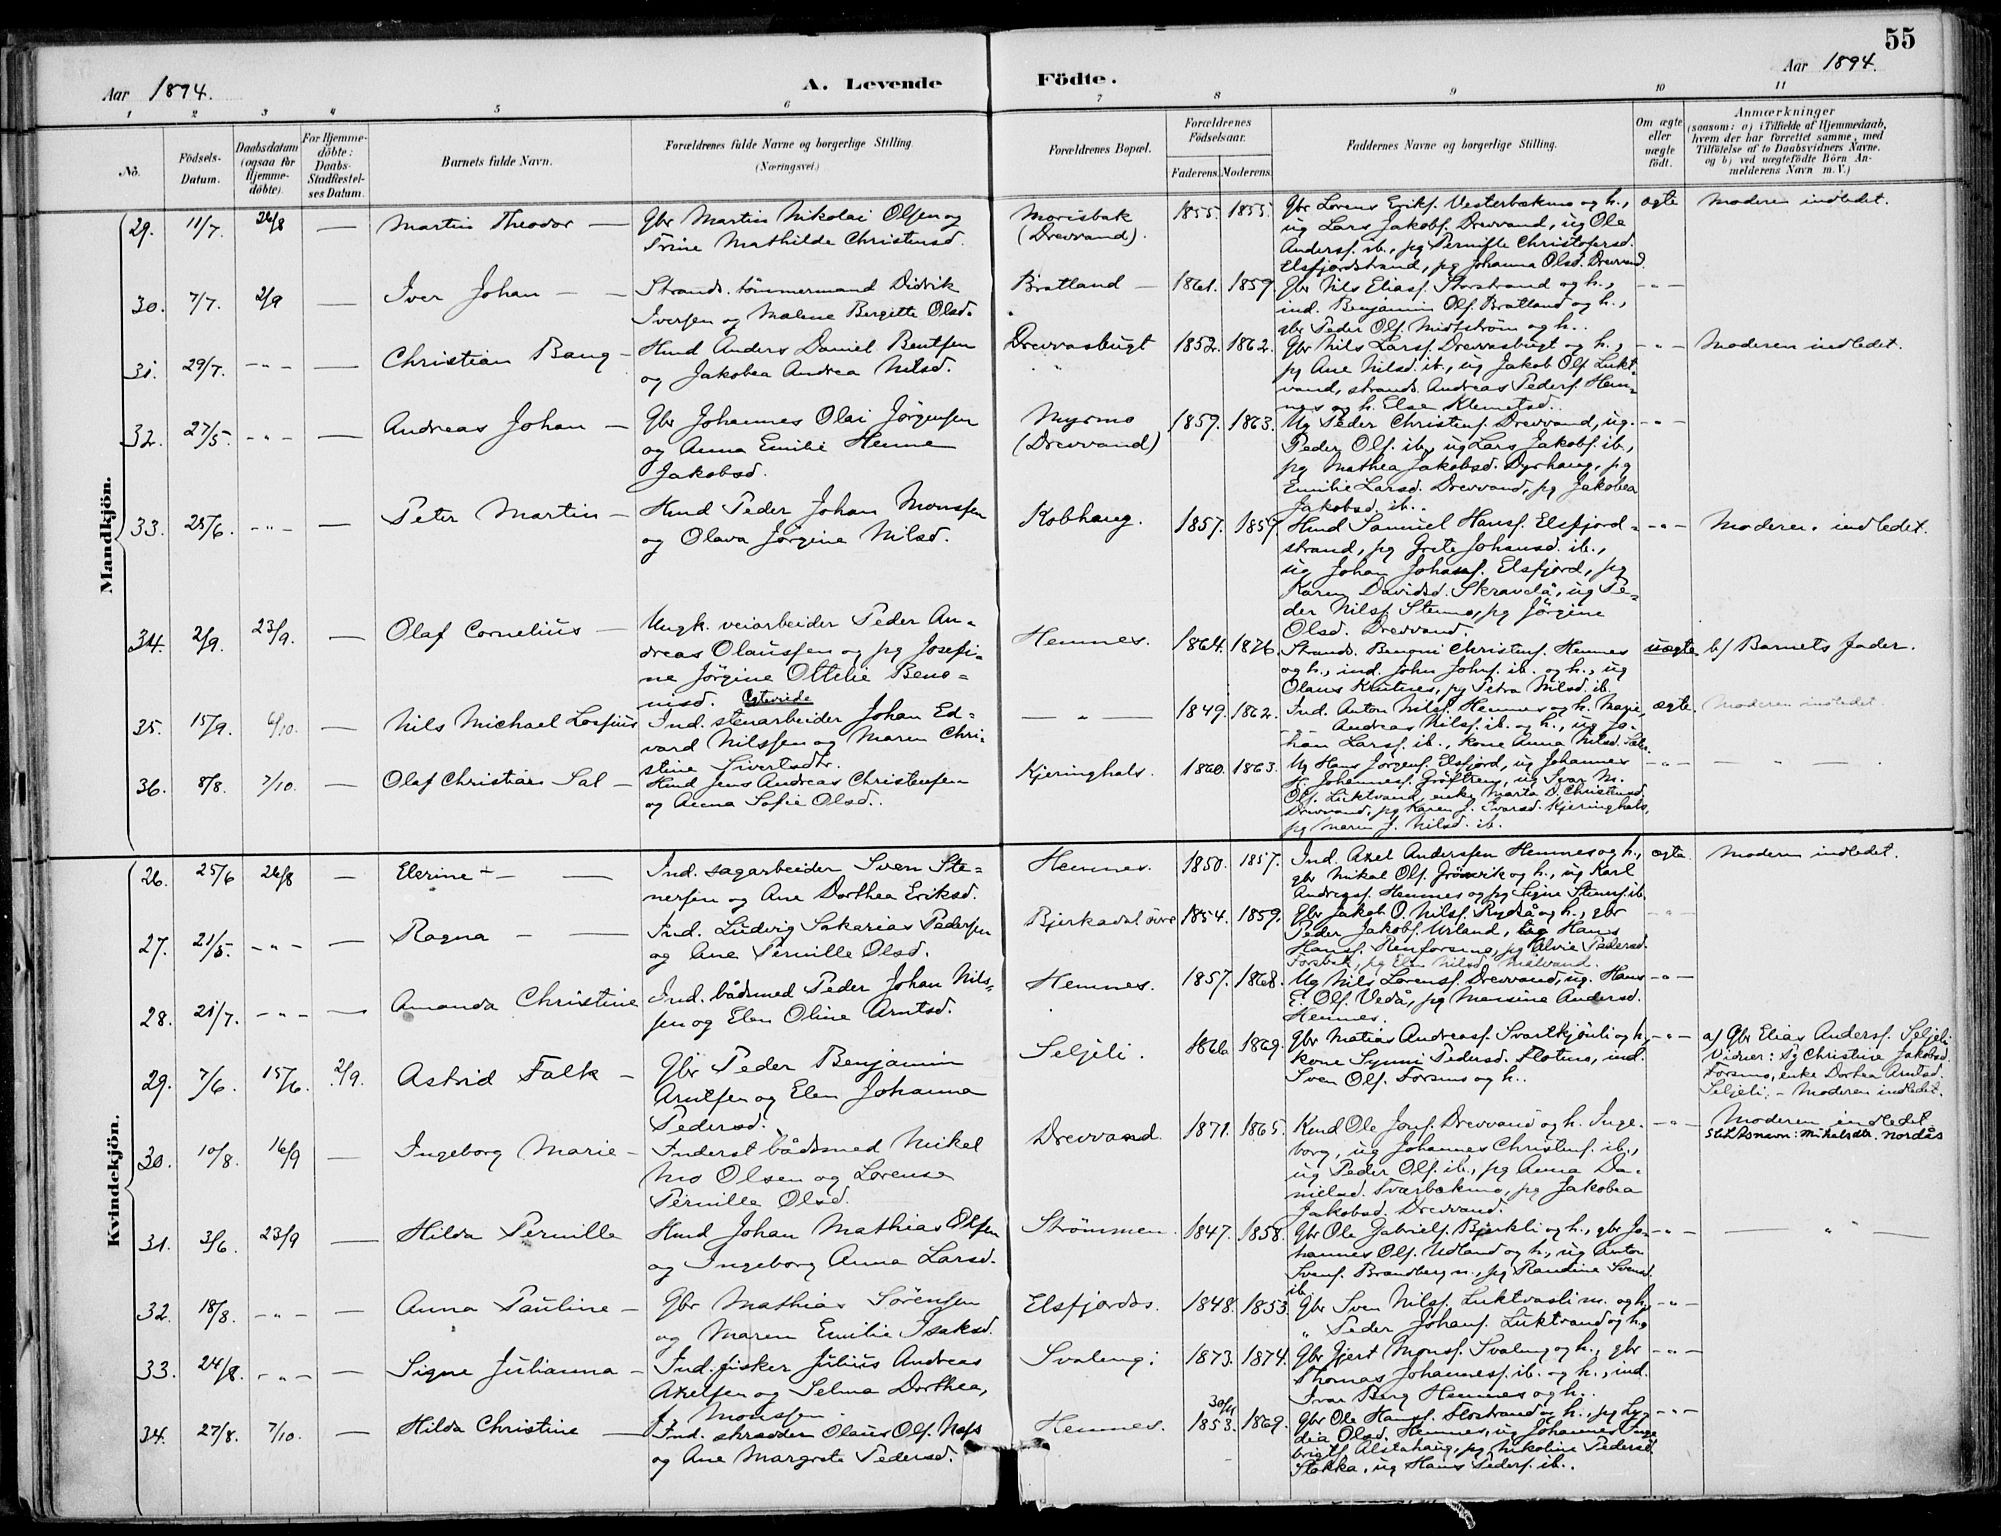 55
Aar 1894.
A. Levende Födte.
Aar 1894.
1 2 3 4 5 6 7 8 9 10 11
No.
Födsels-Datum.
Daabsdatum (ogsaa for Hjemmedöbte).
For Hjemmedöbte: Daabs-Stadfestelses Datum.
Barnets fulde Navn.
Forældrenes fulde Navne og borgerlige Stilling.
(Næringsvei.)
Forældrenes Bopæl.
Forældrenes Födselsaar.
Faderens. Moderens.
Faddernes Navne og borgerlige Stilling.
Om ægte eller uægte födt.
Anmærkninger
(saasom: a) i Tilfælde af Hjemmedaab, hvem der har forrettet samme, med Tilföielse af to Daabsvidners Navne, og b) ved uægtefödte Börn Anmelderens Navn m. V.)
Mandkjön.
29. 11/7. 26/8 — Martin Theodor — Gbr Martin Nikolai Olsen og
Trine Mathilde Christensd.
Morisbak
(Drevvand).
1855. 1855.
Gbr Lorens Eriks. Vesterbækmo og h.,
ug Lars Jakobs. Drevvand, ug Ole
Anders. ib., pg Pernille Christophersd.
Elsfjordstrand, pg Johanna Olsd. Drevvand.
ægte Moderen indledet.
30. 7/7. 2/9 — Iver Johan — Strands. tömmermand Didrik
Iversen og Malene Bergitte Olsd.
Bratland —
1861. 1859.
Gbr Nils Elias. Storstrand og h.,
ind. Benjamin Ols. Bratland og h.,
gbr Peder Ols. Midtström og h..
31. 29/7. -"- — Christian Bang — Hmd Anders Daniel Bentsen
og Jakobea Andrea Nilsd.
Drevvasbugt
1852. 1862.
Gbr Nils Lars. Drevvasbugt og h.,
pg Ane Nilsd. ib., ug Jakob Ols. Lukt-
vand, strands. Andreas Peders. Hem-
nes og h. Else Klemetsd..
-"- Moderen indledet.
32. 27/5. -"- — Andreas Johan — Gbr Johannes Olai Jörgensen
og Anna Emilie Henne
Jakobsd.
Myrmo
(Drevvand)
1859. 1863.
Ug Peder Christens. Drevvand, ug.
Peder Ols. ib., ug Lars Jakobs. ib.,
pg Mathea Jakobsd. Dyrhaug, pg
Emilie Larsd. Drevvand, pg Jakobea
Jakobsd. ib..
-"-
33. 25/6. -"- — Peter Martin — Hmd Peder Johan Monsen
og Olava Jörgine Nilsd.
Kobhaug.
1857. 1859.
Hmd Samuel Hans. Elsfjord-
strand, pg Grete Johansd. ib.,
ug Johan Johans. Elsfjord, pg
Karen Davidsd. Skravlå, ug Pe-
der Nils. Stenmo, pg Jörgine
Olsd. Drevvand.
-"- Moderen indledet.
34. 2/9. 23/9. — Olaf Cornelius — Ungk. veiarbeider Peder An-
dreas Olaussen og pg Josefi-
ne Jörgine Ottelie Beno-
nisd.
Hemnes.
1864. 1876.
Strands. Benoni Christens. Hemnes
og h., ind. John Johns. ib. og h., ug
Olaus Knutnes, pg Petra Nilsd. ib.
uægte b/ Barnets fader.
35. 15/9. 6/10. — Nils Michael Losius Ind. stenarbeider Johan Ed-
vard Nilssen og Maren Chri-
stine Sivertsdtr.
— " —
1849. 1862.
Ind. Anton Nils. Hemnes og h. Marie,
" Andreas Nils. ib. og h., ug Jo-
han Lars. ib., kone Anna Nilsd.
ægte. Moderen indledet.
36. 8/8. 7/10. — Olaf Christian Sal — Hmd Jens Andreas Christensen
og Anna Sofie Olsd..
Kjeringhals.
1860. 1863.
Ug Hans Jörgens. Elsfjord, ug Johannes
Johannes. Gröftrem, ug Ivar M.
Ols. Luktvand, enke Marta D. Christensd.
Drevvand, pg Karen J. Evarsd. Kjeringhals,
pg Maren J. Nilsd. ib.
-"- — " —
Kvindekjön.
26. 25/6 26/8 — Elerine — Ind. sagarbeider Sven Ste-
nersen og Ane Dorthea Eriksd.
Hemnes.
1850. 1857.
Ind. Axel Anderssen Hemnes og h.,
gbr Mikal Ols. Grönvik og h., ug Karl
Andreas. Hemnes og pg Signe Stens. ib.
ægte Moderen indledet.
27. 21/5. -"- — Ragna — Ind. Ludvig Sakarias Pedersen
og Ane Pernille Olsd.
Bjerkadal övre
1854. 1859.
Gbr Jakob O. Nils. Rydså og h., gbr
Peder Jakobs. Urland, Hans
Hans. Renforsmo, pg Alvie Pedersd.
Forsbak, pg Elen Nilsd. Målvand.
-"-
28. 21/7. -"- — Amanda Christine Ind. bådsmed Peder Johan Nils-
sen og Elen Oline Arntsd.
Hemnes.
1857. 1868.
Ug Nils Lorens. Drevvand, ug. Hans
E. Ols. Vedå, pg Marsine Andersd.
Hemnes.
-"-
29. 7/6. 15/6. 2/9. Astrid Falk — Gbr Peder Benjamin
Arntsen og Elen Johanna
Pedersd.
Seljeli.
1866 1869.
Gbr Matias Andreas. Svartkjönli og h.
kone Synni Pedersd. Flotmo, ind.
Sven Ols. Forsmo og h..
-"- a/ Gbr Elias Anders. Seljeli
Vidner: pg Christine Jakobsd.
Forsmo, enke Dorhea Arntsd.
Seljeli. – Moderen indledet.
30. 10/8. 16/9 — Ingeborg Marie — Inderst bådsmed Mikel
Mo Olsen og Lorense
Pernille Olsd.
Drevvand.
1871. 1865.
Kmd Ole Jons. Drevvand og h. Inge-
borg, ug Johannes Christens. ib.,
ug Peder Ols. ib., pg Anna Da-
nielsd. Tværbækmo, pg Jakobea
Jakobsd. Drevvand.
-"- Moderen indledet.
Slektsnavn: Mikalsdtr. Nordås
31. 3/6. 23/9 — Hilda Pernille Hmd Johan Mathias Olsen
og Ingeborg Anna Larsd.
Strömmen.
1847. 1858.
Gbr Ole Gabriels. Bjerkli og h., gbr Jo-
hannes Ols. Udland og h., ug Anton
Svens. Brandberg n., pg Randine Svensd.
ib.
-"- — " —
32. 18/8. -"- — Anna Pauline — Gbr Mathias Sörensen
og Maren Emilie Isaksd.
Elsfjordos.
1848. 1853.
Gbr Sven Nils. Luktvasli m. og h.,
" Peder Johans. Luktvand og h.
-"-
33. 24/8. -"- — Signe Julianna — Ind. fisker Julius Andreas
Axelsen og Selma Dorthea,
f. Monssen.
Svaleng:
1873. 1874.
Gbr Gjert Mons. Svaleng og h., gbr
Thomas Johannes. ib. og h., ind.
Ivar Berg Hemnes og h..
-"-
34. 27/8. 7/10. — Hilda Christine — Ind. skrædder Olaus Ols. Næss
og Ane Margrete Pedersd.
Hemnes.
30/11
1853. 1869.
Gbr Ole Hans. Flostrand og h., pg Ly-
dia Olsd. Hemnes, ug Johannes Inge-
brigts. Alstahaug, pg Nikoline Pedersd.
Stokka, ug Hans Peders. ib..
-"-